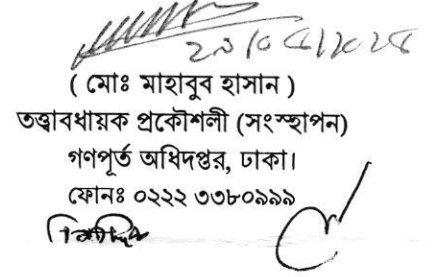 ( মোঃ মাহাবুব হাসান )
তত্ত্বাবধায়ক প্রকৌশলী (সংস্থাপন)
গণপূর্ত অধিদপ্তর, ঢাকা।
ফোনঃ ০২২২ ৩৩৮০৯৯৯